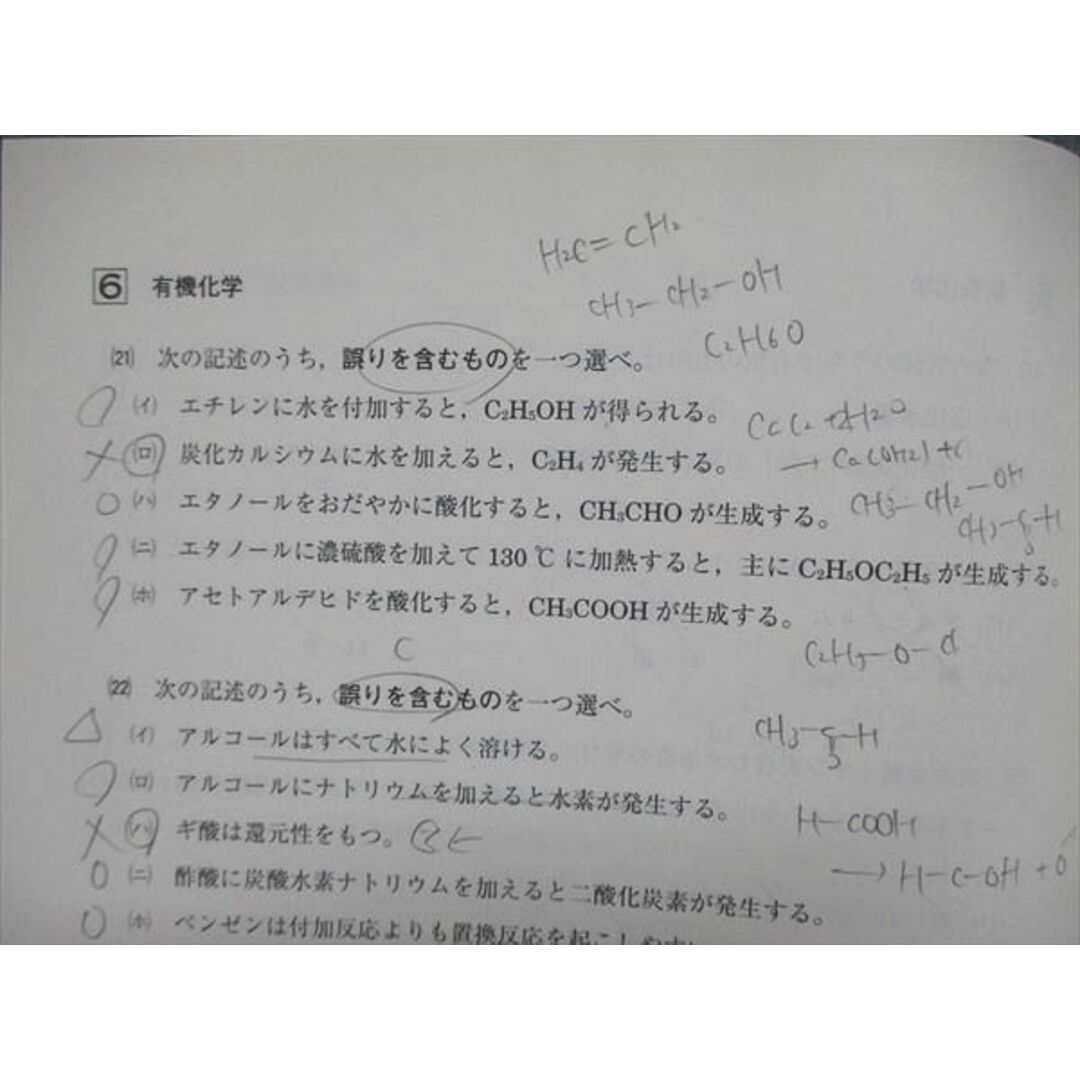 H2C=CH2
6 有機化学
CH3-CH2-OH
C2H6O
(21) 次の記述のうち，誤りを含むものを一つ選べ。
(イ) エチレンに水を付加すると，C₂H₅OH が得られる。
(ロ) 炭化カルシウムに水を加えると，C₂H₄ が発生する。
(ハ) エタノールをおだやかに酸化すると，CH₃CHO が生成する。
CH3-CH2-OH
(ニ) エタノールに濃硫酸を加えて 130 ℃ に加熱すると，主に C₂H₅OC₂H₅ が生成する。
(ホ) アセトアルデヒドを酸化すると，CH₃COOH が生成する。
C
(22) 次の記述のうち，誤りを含むものを一つ選べ。
(イ) アルコールはすべて水によく溶ける。
(ロ) アルコールにナトリウムを加えると水素が発生する。
H-COOH
(ハ) ギ酸は還元性をもつ。
→ H-C-OH + O
(ニ) 酢酸に炭酸水素ナトリウムを加えると二酸化炭素が発生する。
(ホ) ベンゼンは付加反応よりも置換反応を起こしやす